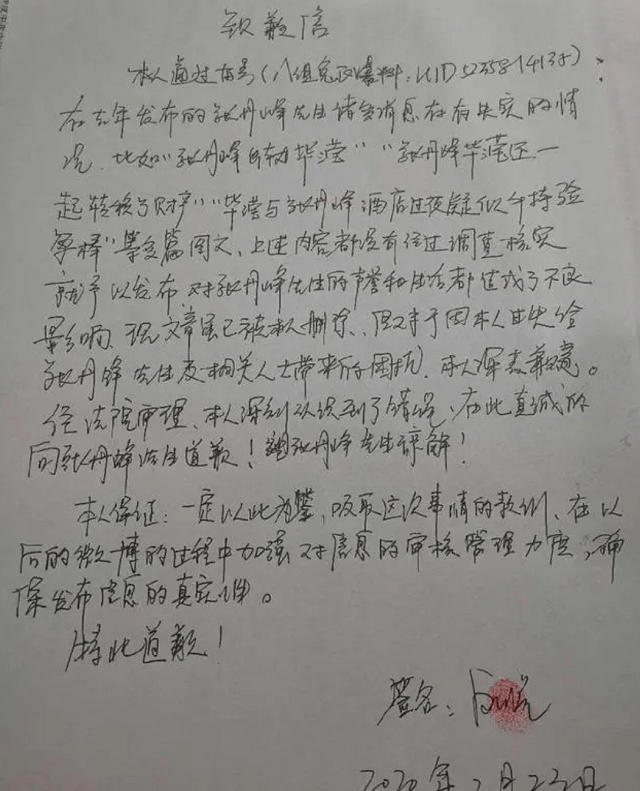 致歉信
本人通过博号(八组兔区爆料,UID5235814135):
在去年发布的张丹峰先生诸多消息存在失实的情
况,比如"张丹峰 毕滢""张丹峰毕滢还一
起转移了财产""毕滢与张丹峰酒店过夜疑似 持验
孕棒"等多篇图文,上述内容都没有经过调查核实
就予以发布,对张丹峰先生的声誉和生活都造成了不良
影响,现文章虽已被本人删除,但对于因本人 失给
张丹峰先生及相关人士带来的困扰,本人深表歉意。
经法院审理,本人深刻认识到了错误,在此真诚的
向张丹峰先生道歉! 张丹峰先生谅解!
本人保证:一定以此为鉴,吸取这次事情的教训,在以
后的微博的过程中加强对信息的审核管理力度,确
保发布信息的真实性。
特此道歉!
签名:
2020年 月23日